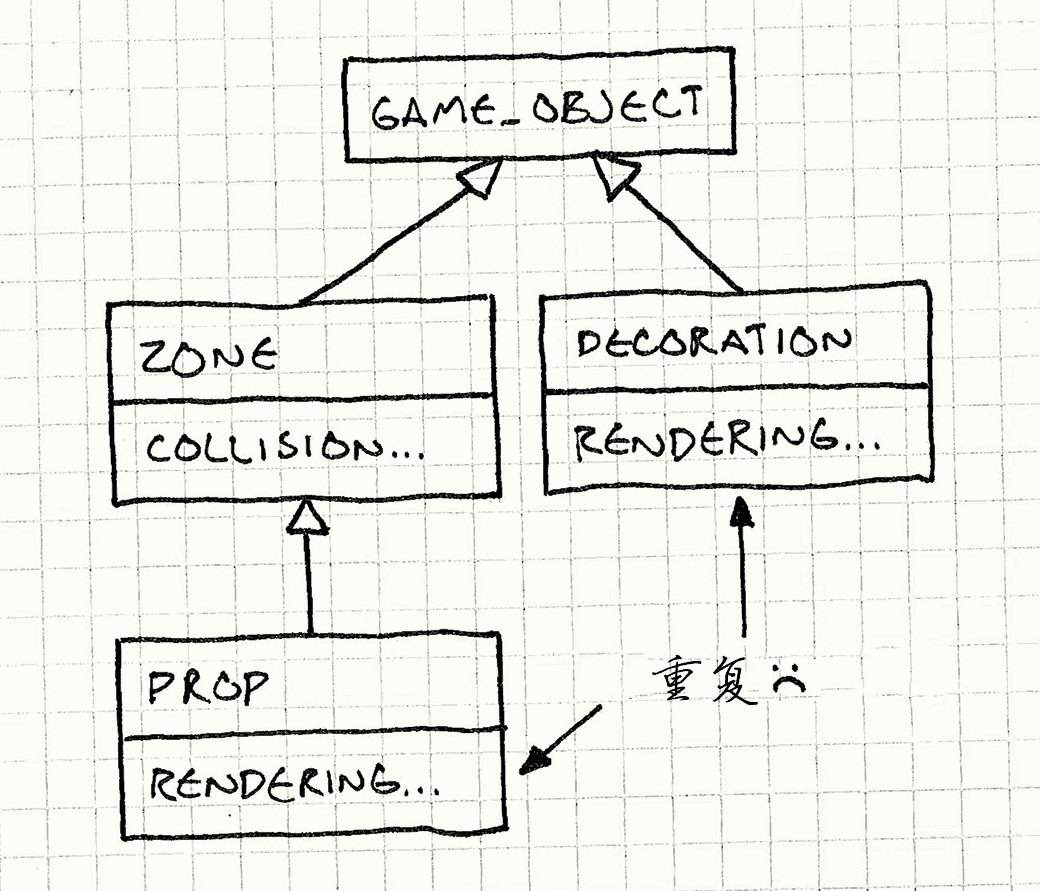 GAME_OBJECT
ZONE
COLLISION...
DECORATION
RENDERING...
PROP
RENDERING...
重复